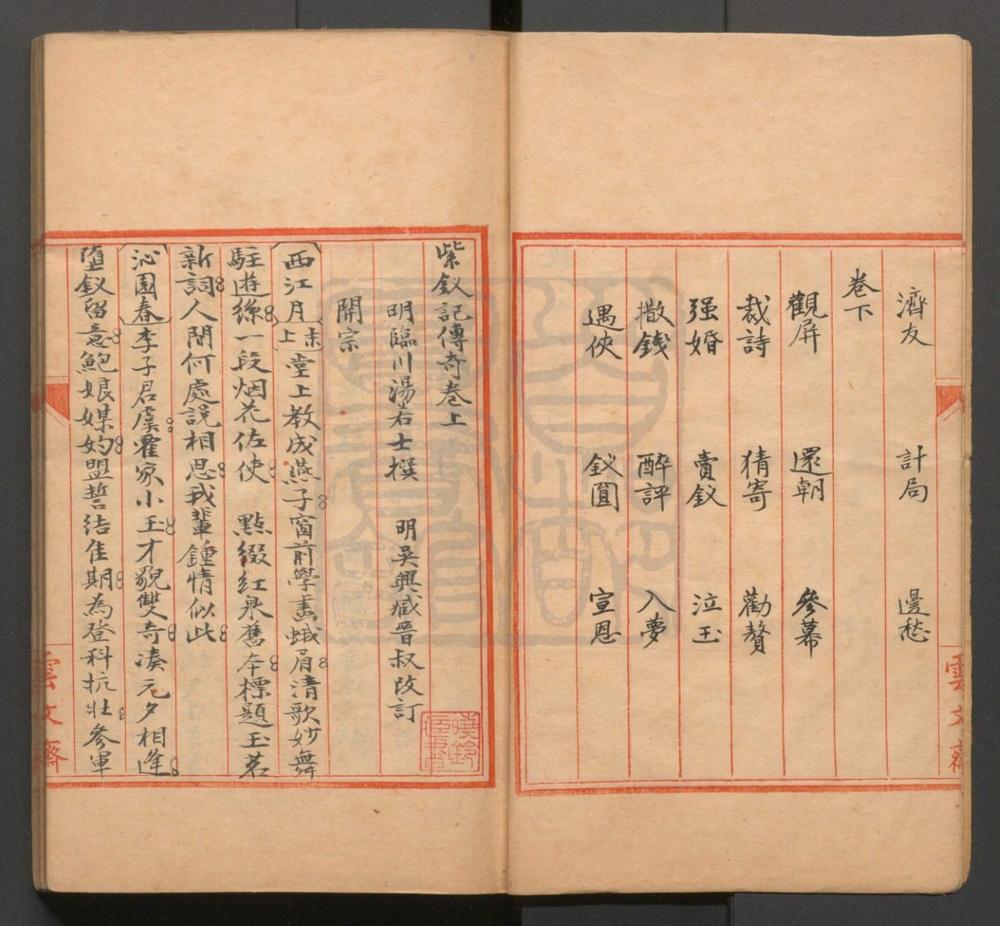 濟友 計局 邊愁
卷下
觀屏 還朝 參幕
裁詩 猜寄 勸贅
强婚 賣釵 泣玉
撒錢 醉評 入夢
遇俠 釵圓 宣恩
雲文齋
紫釵記傳奇卷上
明臨川湯若士撰 明吳興臧晉叔改訂
開宗
西江月末上堂上教成燕子窗前學畫蛾眉清歌妙舞
駐遊絲一段烟花佐使 點綴紅泉舊本標題玉茗
新詞人間何處說相思我輩鍾情似此
沁園春李子君虞霍家小玉才貌雙奇湊元夕相逢
墮釵留意鮑娘媒妁盟誓結佳期為登科抗壯參軍
雲文齋